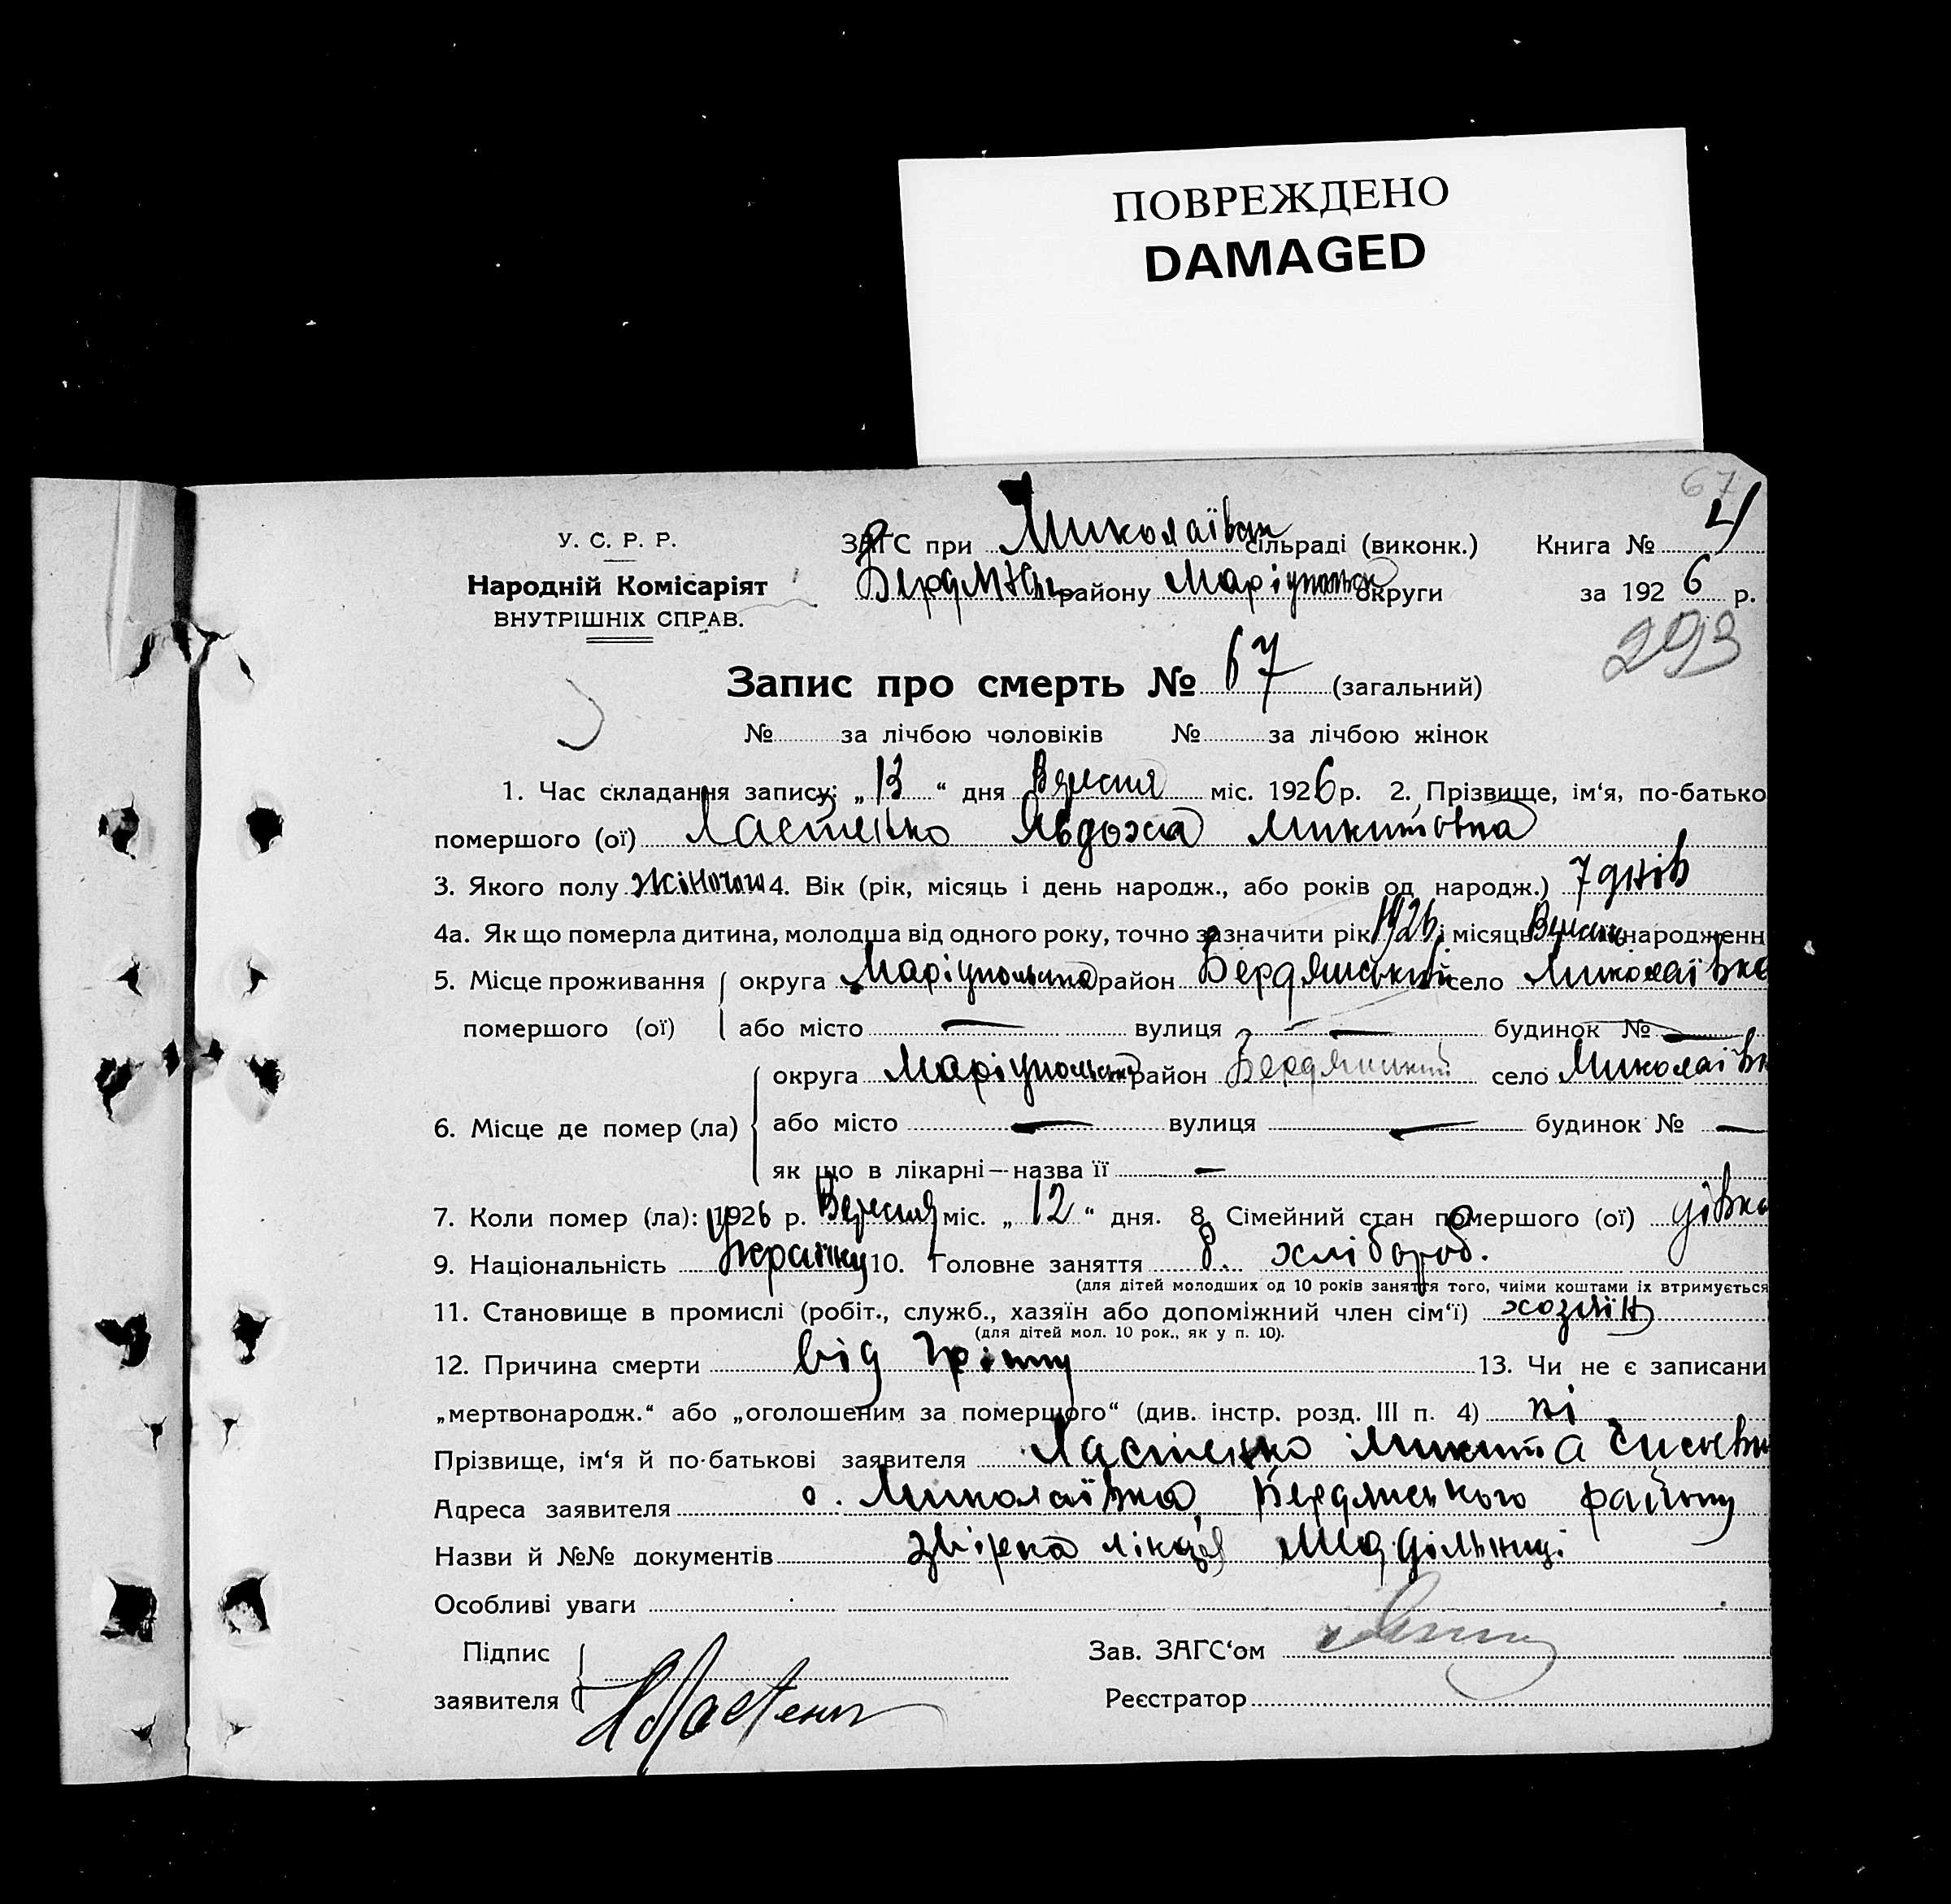 ПОВРЕЖДЕНО
DAMAGED
67
4
У. С. Р. Р.
Народній Комісаріят
ВНУТРІШНІХ СПРАВ.
ЗАГС при Миколаївськ сільраді (виконк.) Книга №
Бердянськ району Маріупольськ округи за 1926 р.
293
Запис про смерть № 67 (загальний)
№ за лічбою чоловіків № за лічбою жінок
1. Час складання запису: „13“ дня Вересня міс. 1926 р. 2. Прізвище, ім‘я, по-батько
помершого (ої) Ластенко Явдоха Микитовна
3. Якого полу жіночого 4. Вік (рік, місяць і день народж., або років од народж.) 7 днів
4а. Як що померла дитина, молодша від одного року, точно зазначити рік 1926 і місяць Вересень народженн
5. Місце проживання округа Маріупольська район Бердянський село Миколаївка
помершого (ої) або місто — вулиця — будинок № —
округа Маріупольська район Бердянський село Миколаївк
6. Місце де помер (ла) або місто — вулиця — будинок № —
як що в лікарні—назва її —
7. Коли помер (ла): 1926 р. Вересня міс. „12“ дня. 8. Сімейний стан помершого (ої) дівка
9. Національність Українку 10. Головне заняття хлібороб.
(для дітей молодших од 10 років заняття того, чиїми коштами їх втримується
11. Становище в промислі (робіт., служб., хазяїн або допоміжний член сім‘ї) хозяїн
(для дітей мол. 10 рок., як у п. 10).
12. Причина смерти від гріппу 13. Чи не є записани
„мертвонародж.“ або „оголошеним за помершого“ (див. інстр. розд. III п. 4) ні
Прізвище, ім‘я й по-батькові заявителя Ластенко Микита
Адреса заявителя с. Миколаївка Бердянського району
Назви й №№ документів лікаря
Особливі уваги
Підпис Зав. ЗАГС‘ом
заявителя Ластенко Реєстратор